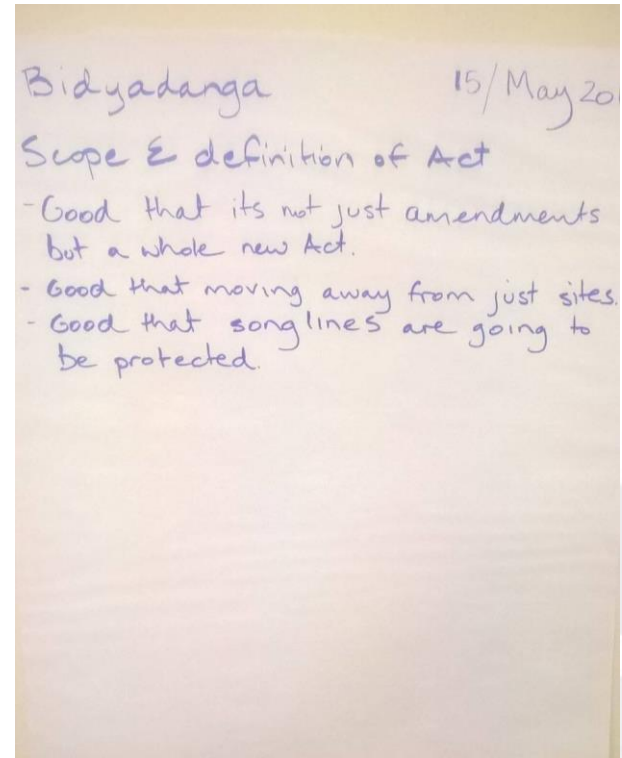 Bidyadanga 15/May 20
Scope & definition of Act
- Good that its not just amendments
but a whole new Act.
- Good that moving away from just sites.
- Good that songlines are going to
be protected.